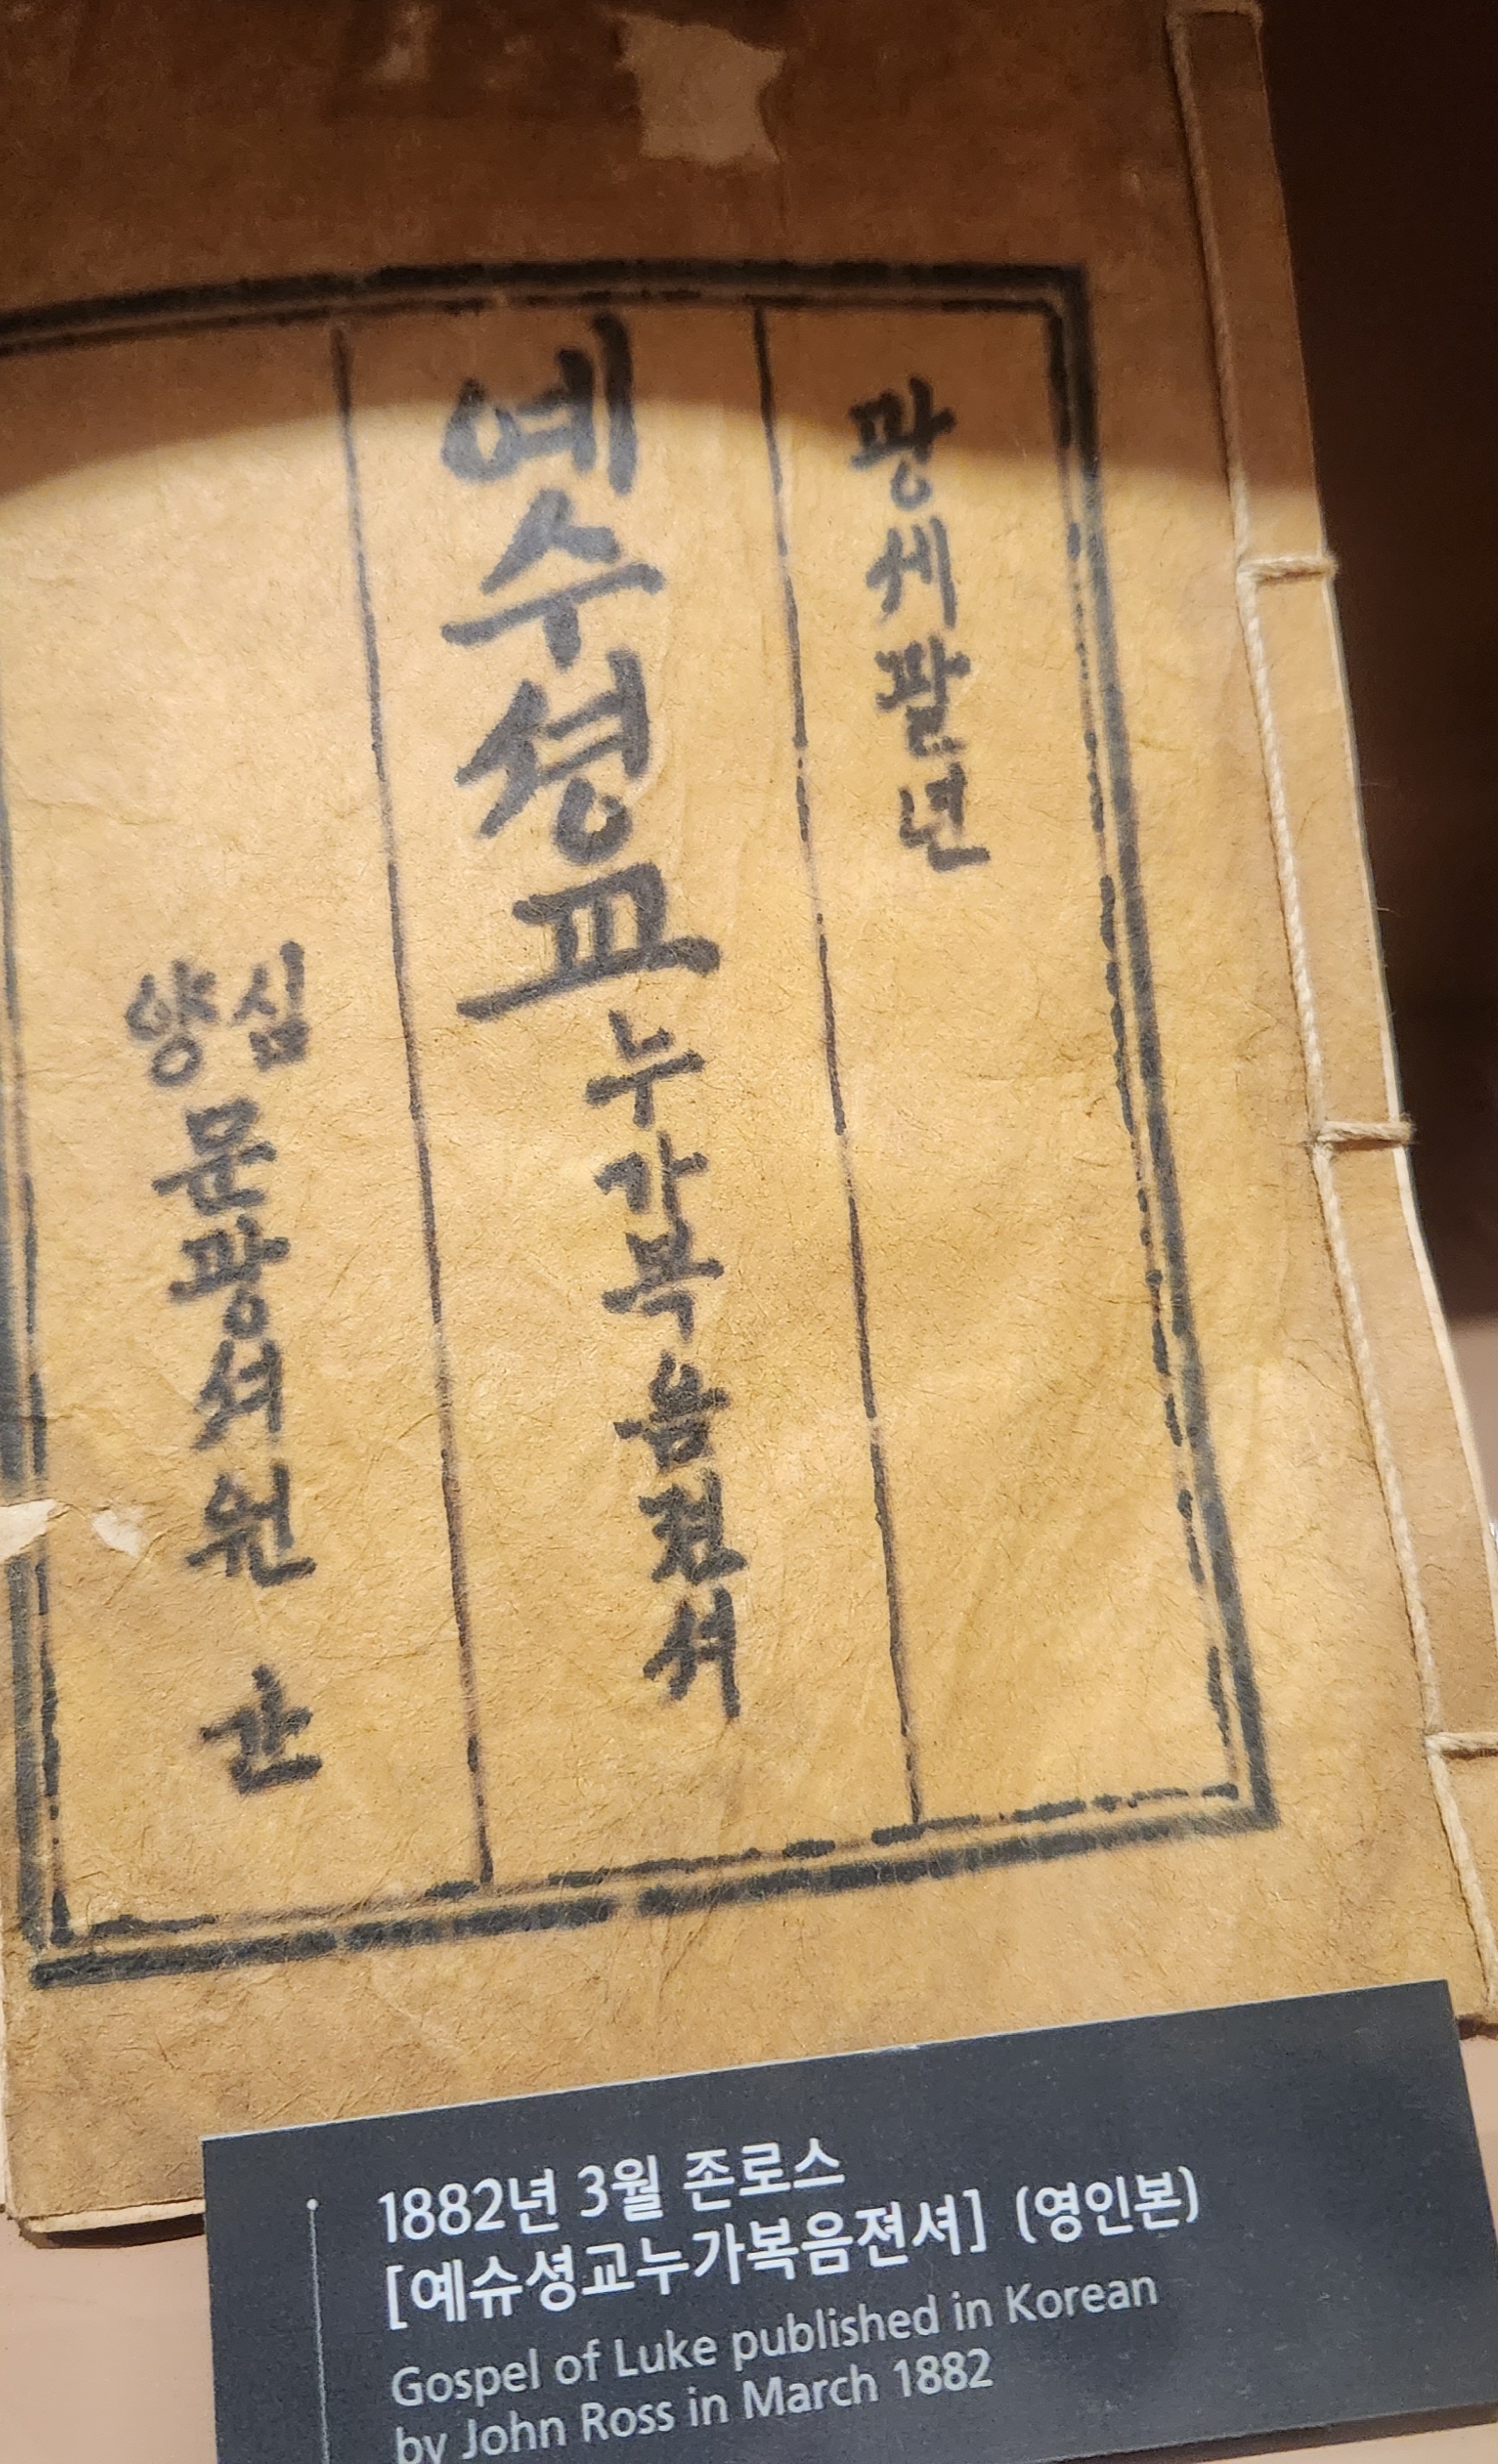 광셰팔년
예수셩교누가복음젼셔
심양문광셔원 간
1882년 3월 존로스
[예슈셩교누가복음젼셔] (영인본)
Gospel of Luke published in Korean
by John Ross in March 1882